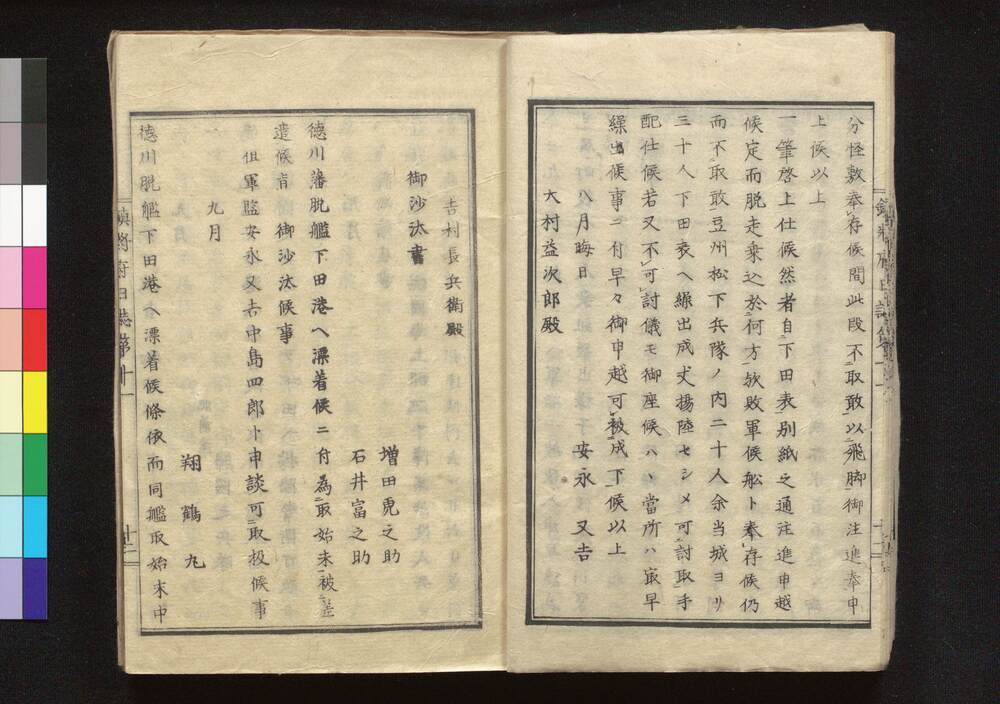 分怪敷奉存候間此段不取敢以飛脚御注進奉申
上候以上
一筆啓上仕候然者自下田表別紙之通注進申越
候定而脱走乗込於何方放敗軍候船ト奉存候仍
而不取敢豆州松下兵隊ノ内二十人余当城ヨリ
三十人下田表ヘ繰出成丈揚陸セシメ可討取手
配仕候若又不可討儀モ御座候ハヽ當所ハ㝡早
繰出候事ニ付早々御申越可被成下候以上
八月晦日
安永又吉
大村益次郎殿
吉村長兵衛殿
御沙汰書
増田虎之助
石井富之助
徳川藩脱艦下田港ヘ漂着候ニ付為取始末被差
遣候旨御沙汰候事
但軍監安永又吉中島四郎ヘ申談可取扱候事
九月
翔鶴丸
徳川脱艦下田港ヘ漂着候條依而同艦取始末中
鎮将府日誌第十一
十二